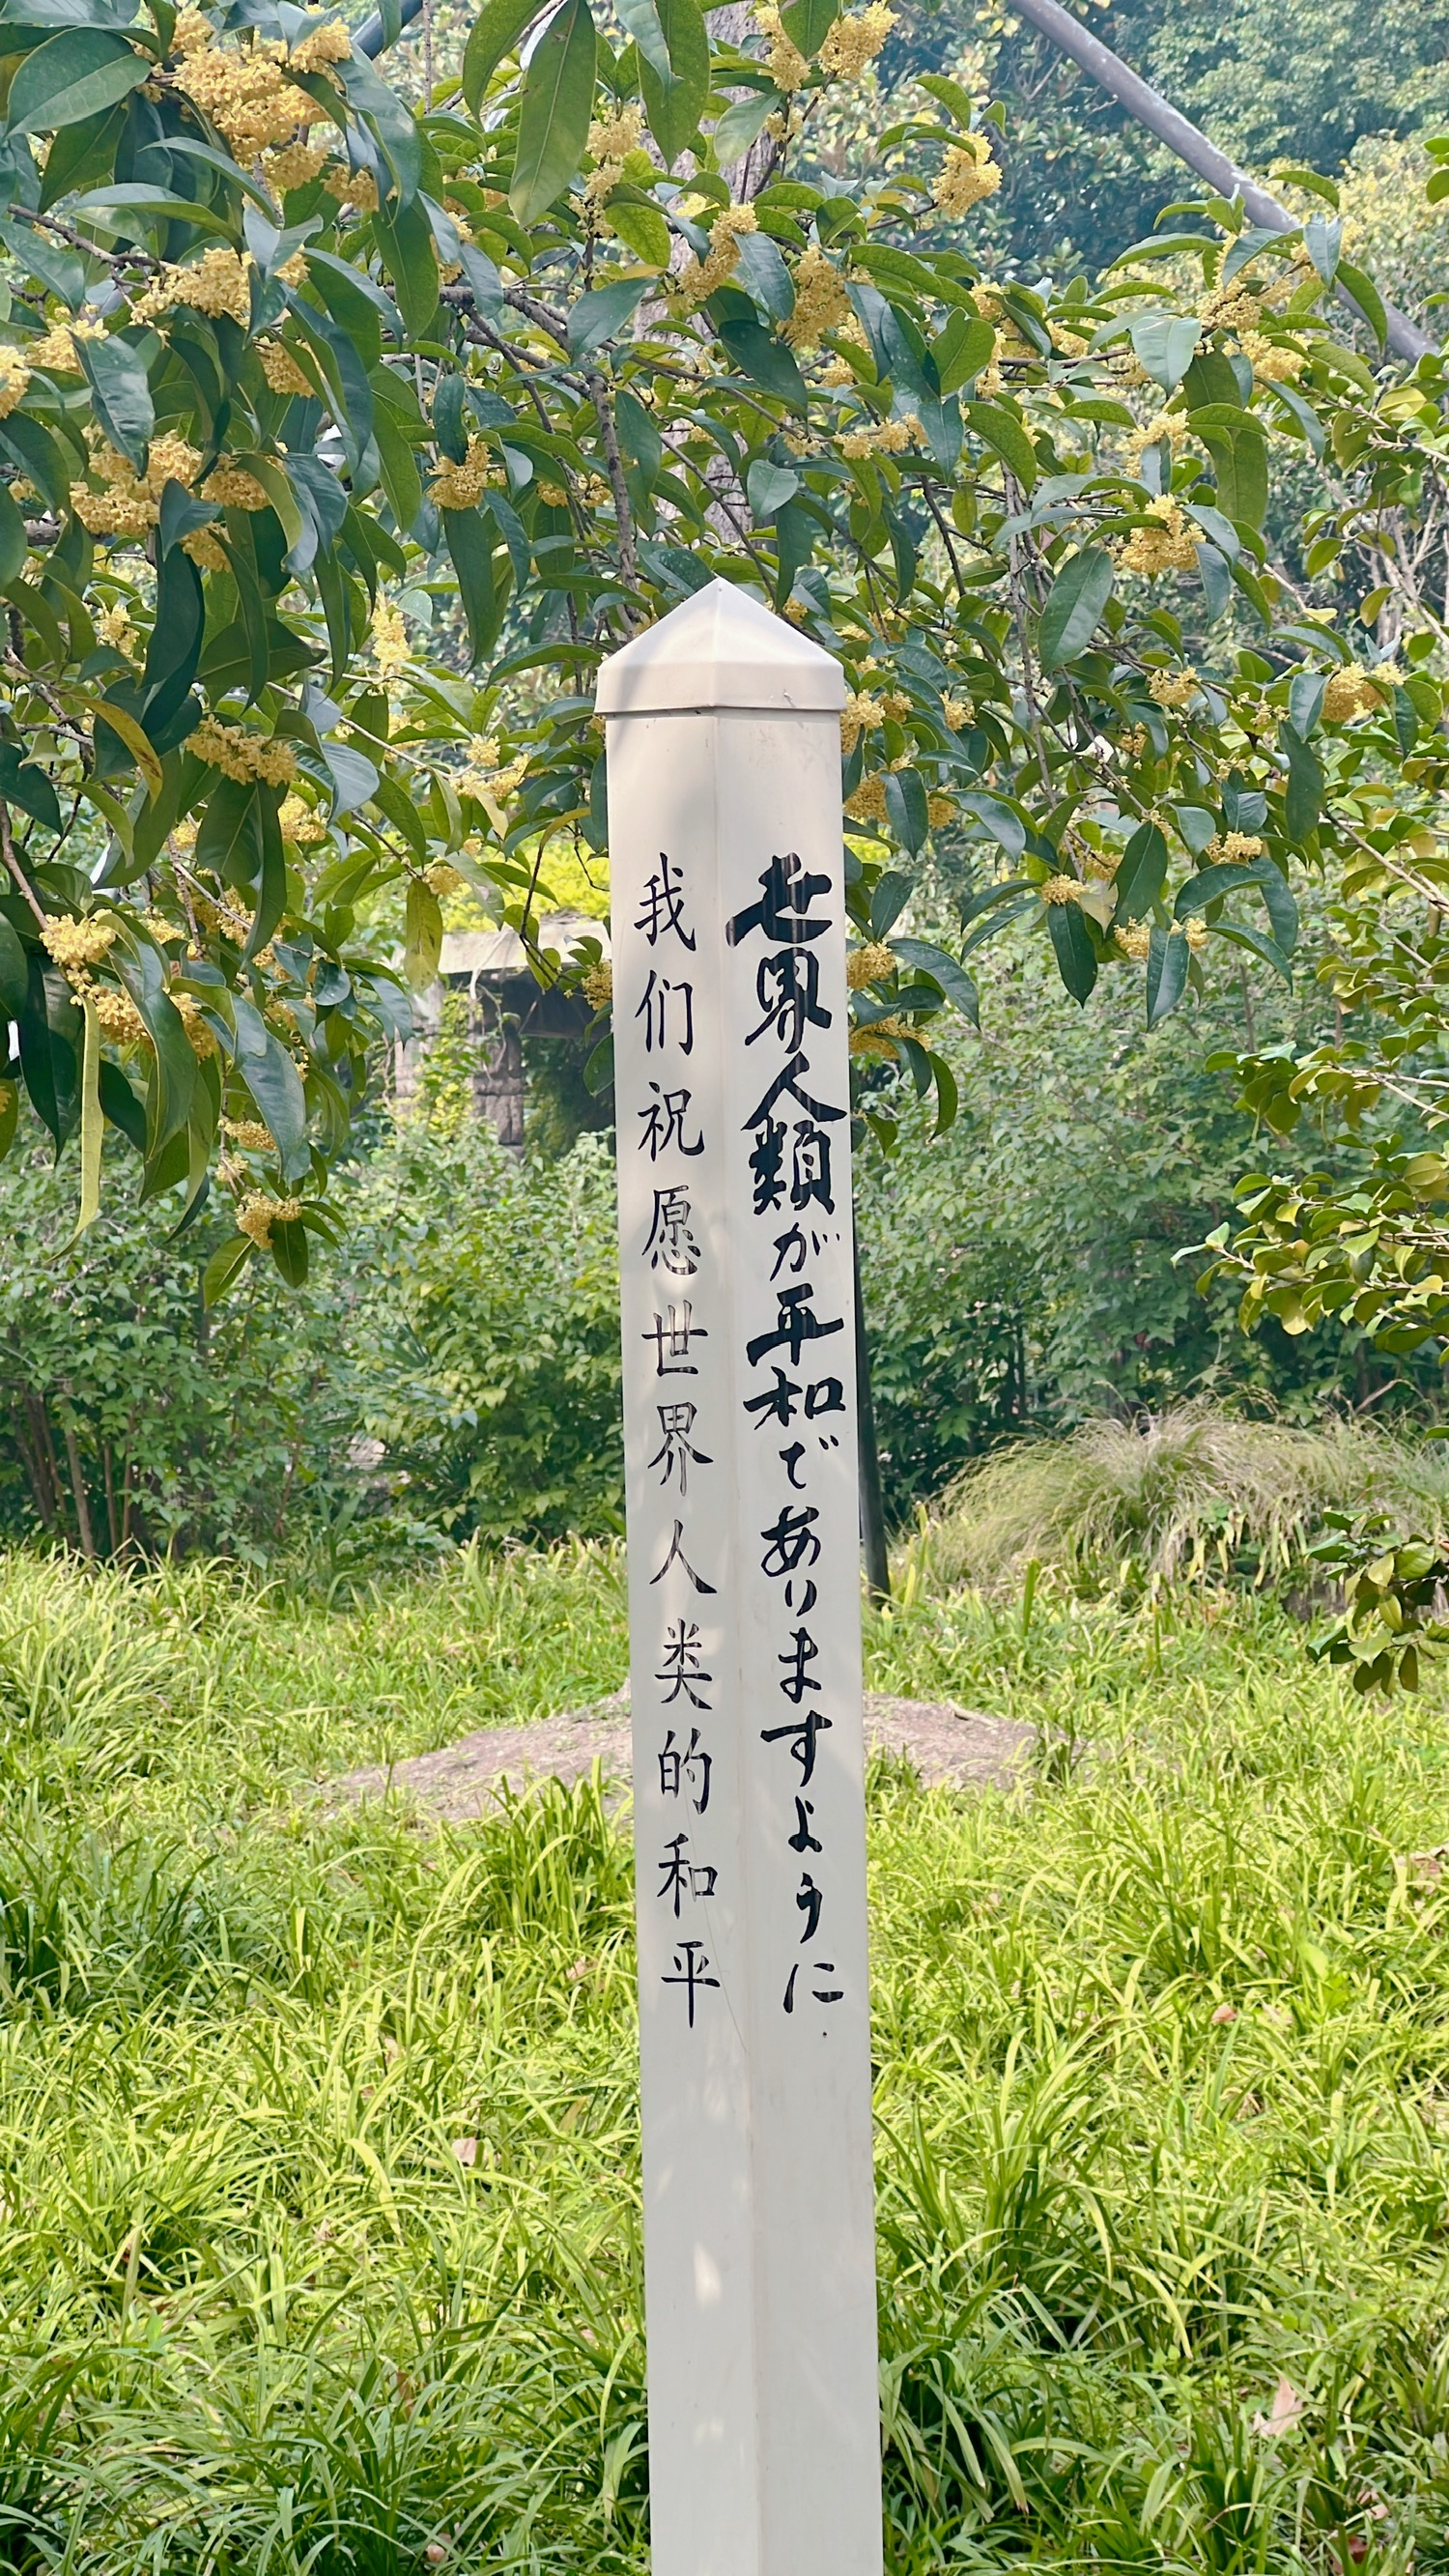 我们祝愿世界人类的和平
世界人類が平和でありますように